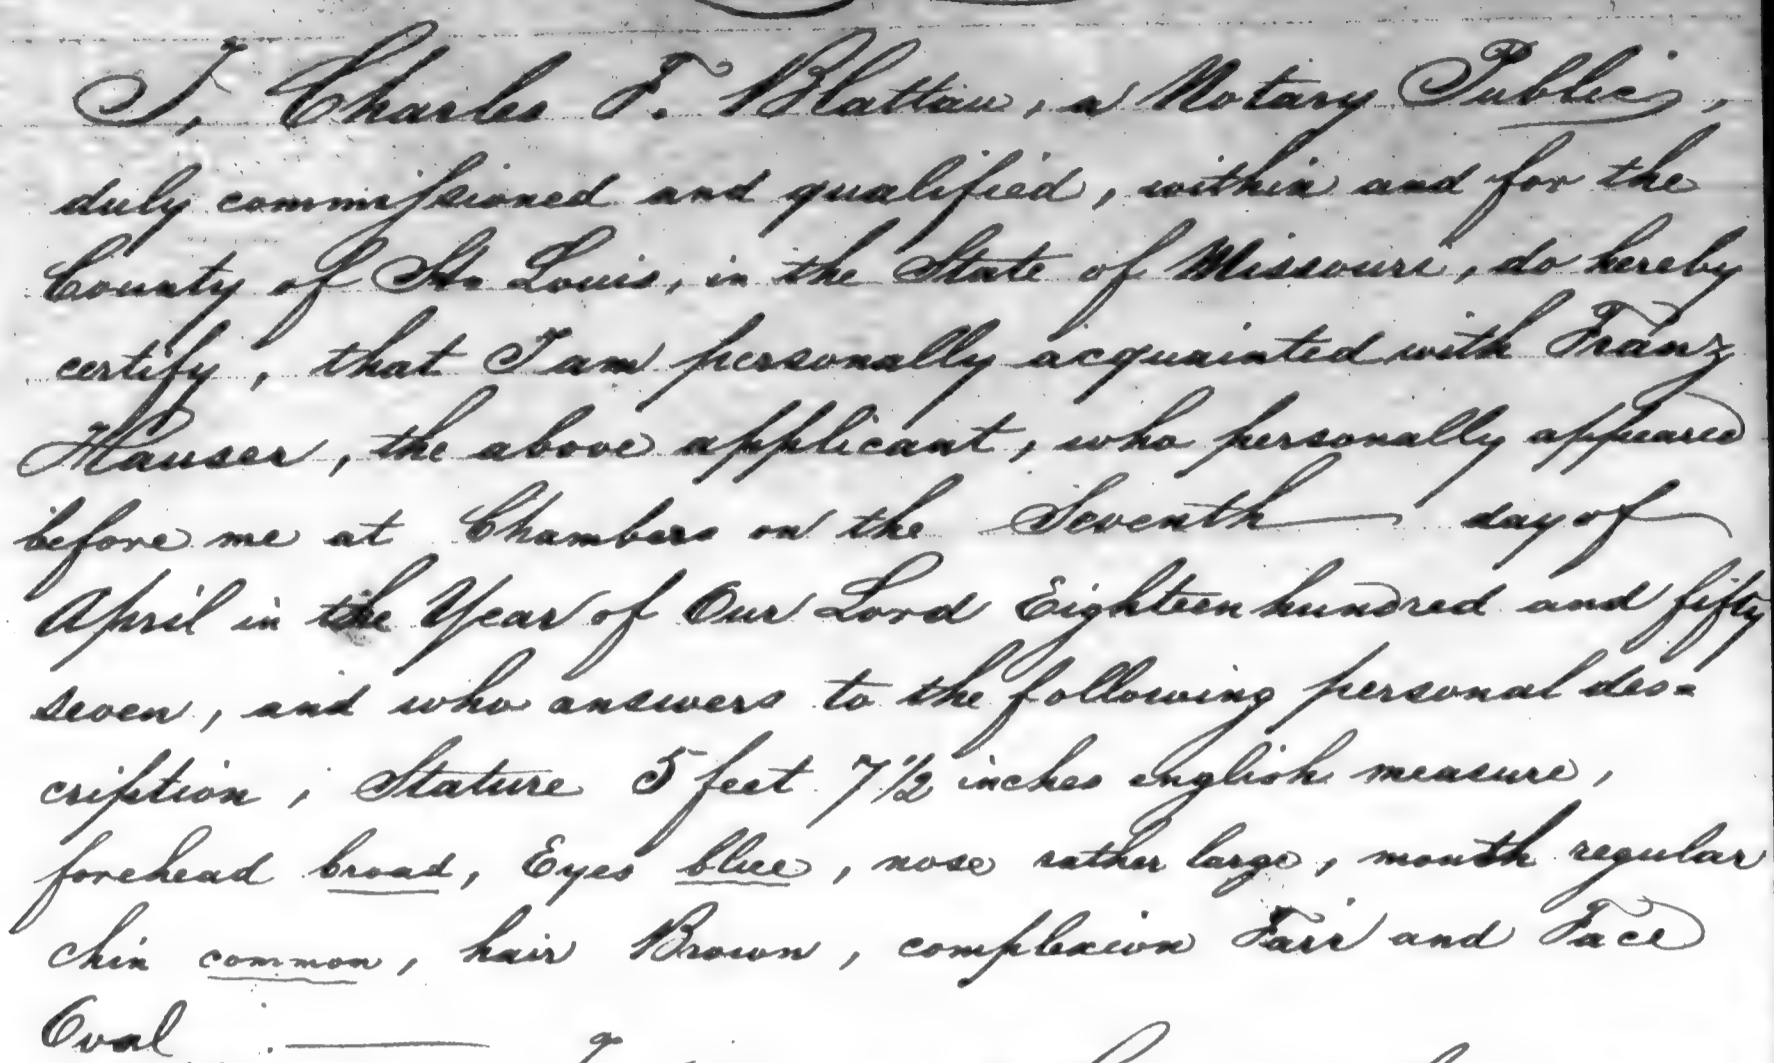 I, Charles F. Blattau, a Notary Public,
duly commissioned and qualified, within and for the
County of St. Louis, in the State of Missouri, do hereby
certify, that I am personally acquainted with Franz
Hauser, the above applicant, who personally appeared
before me at Chambers on the Seventh day of
April in the Year of Our Lord Eighteen hundred and fifty
seven, and who answers to the following personal des=
cription; Stature 5 feet 7 1/2 inches english measure,
forehead broad, Eyes blue, nose rather large, mouth regular
chin common, hair Brown, complexion Fair and Face
Oval